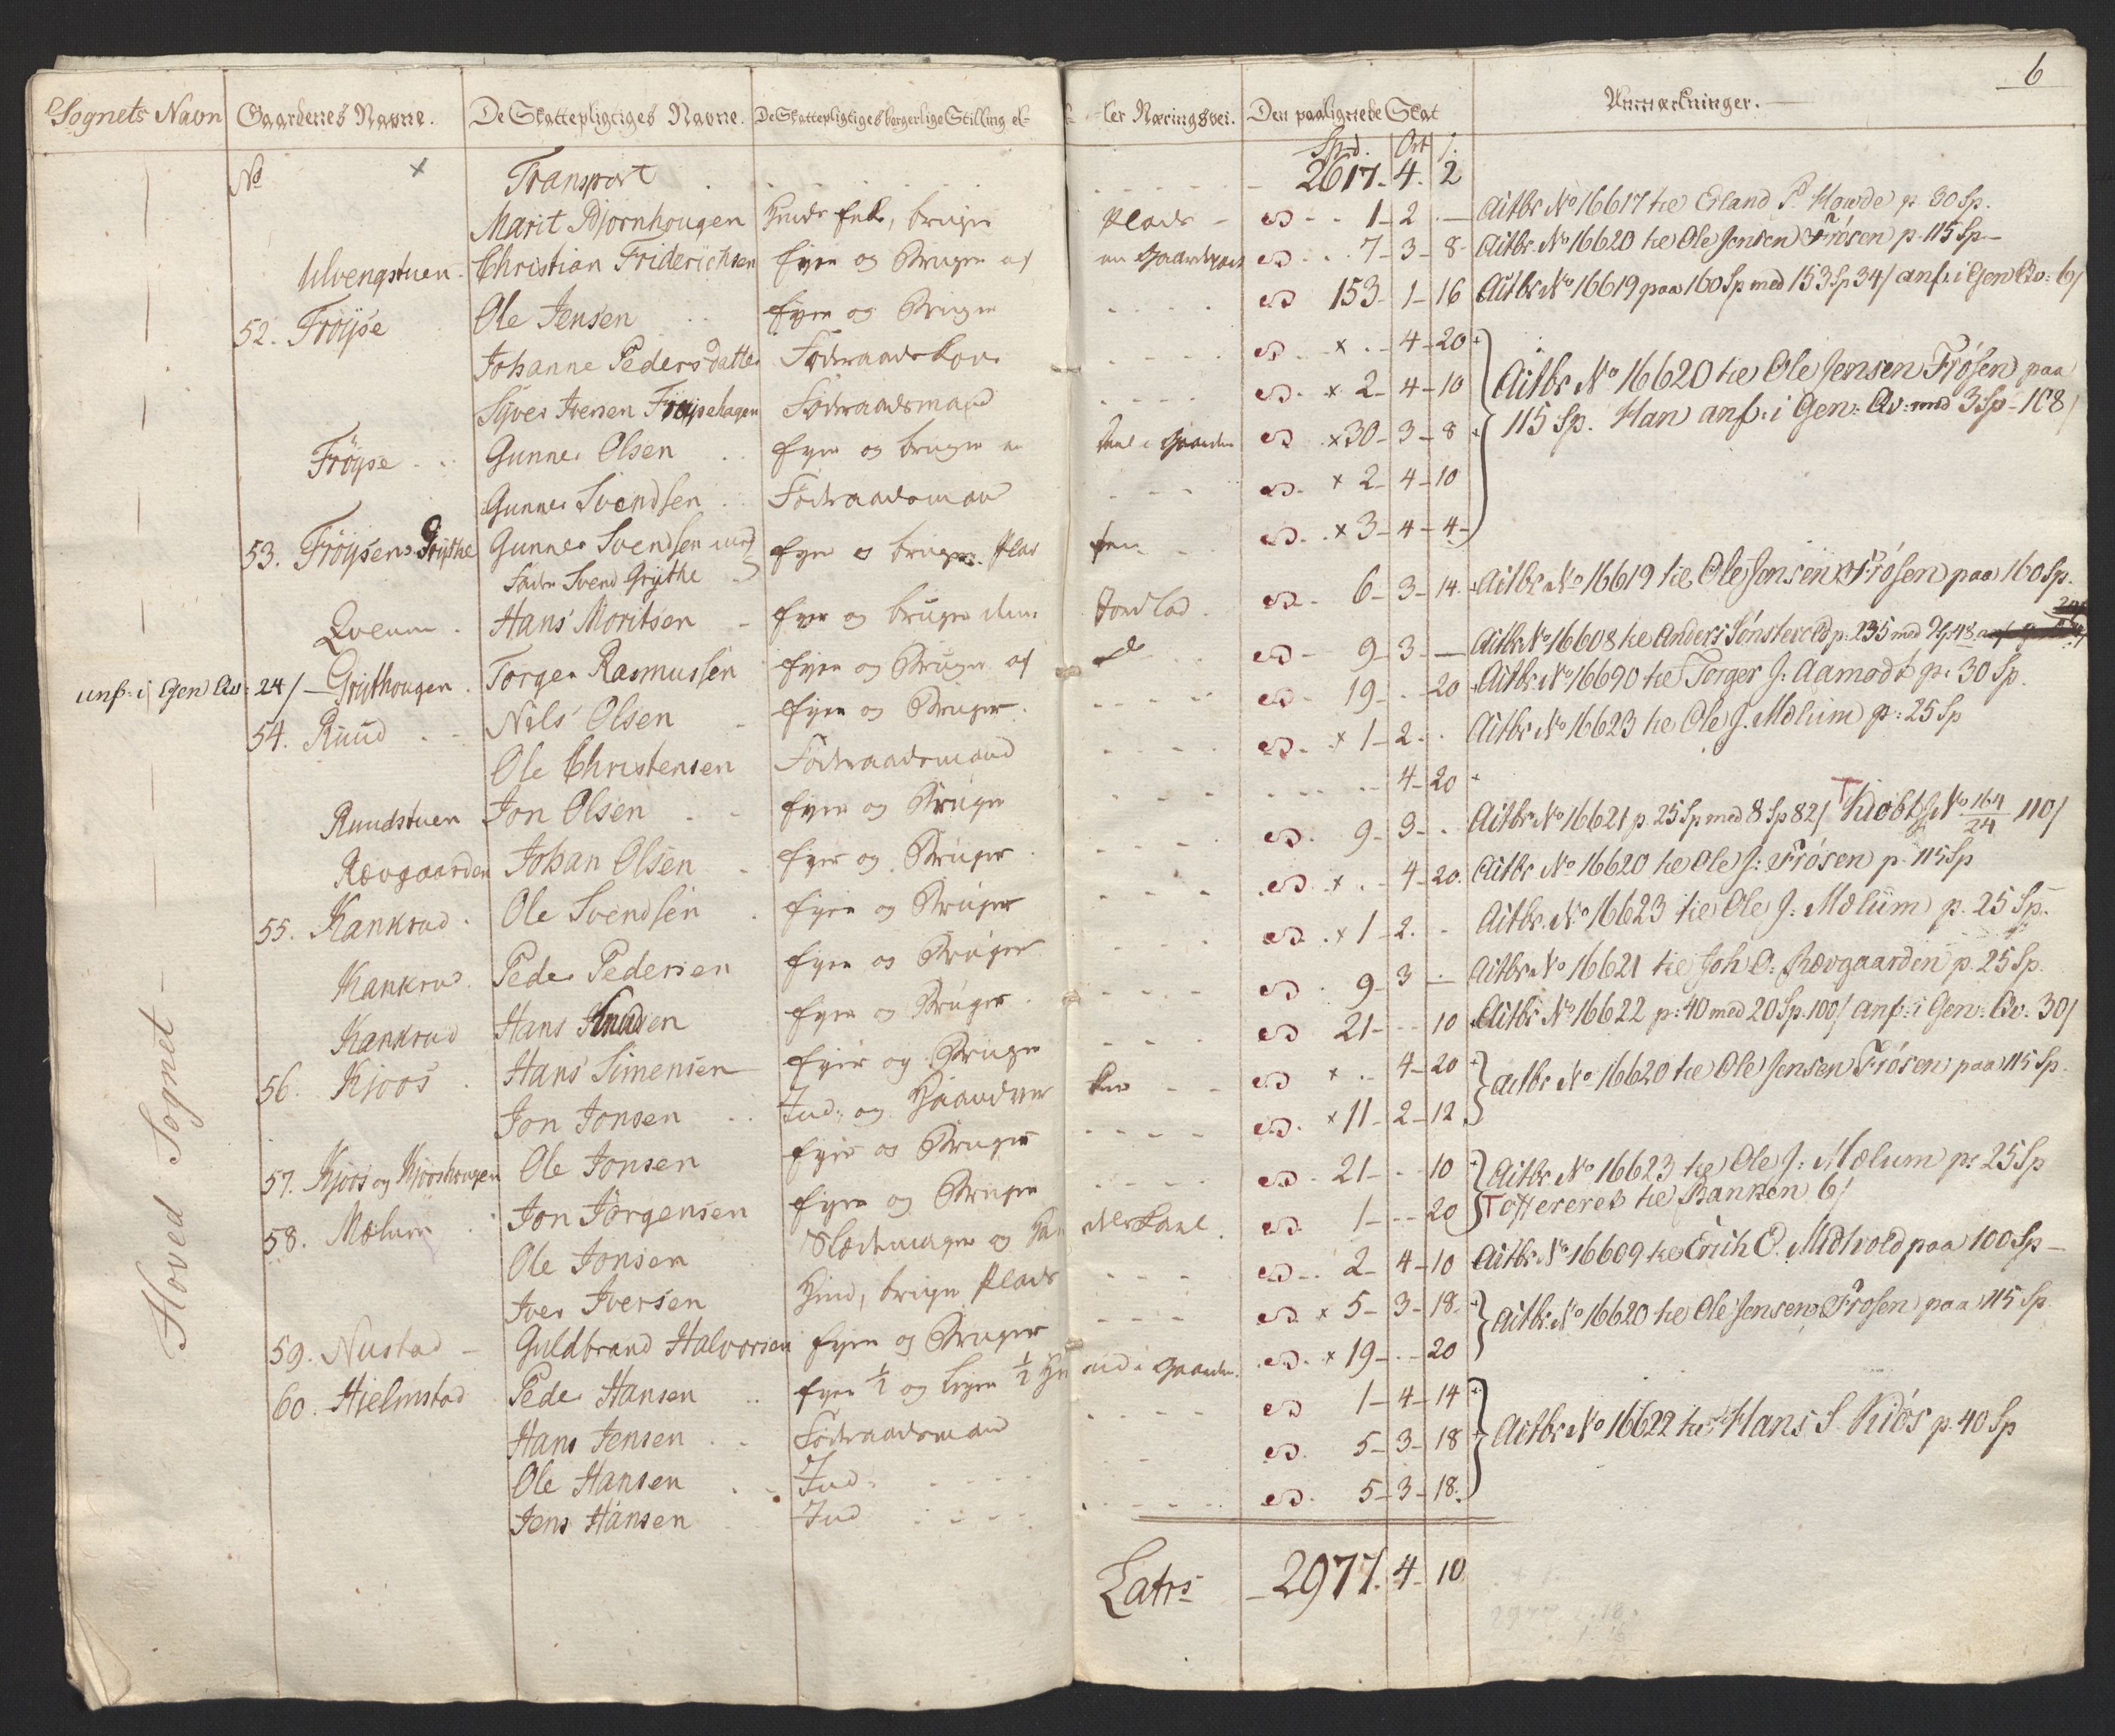 6
Sognets Navn Gaardenes Navne. De Skattepligtiges Navne. De Skattepligtiges borgerlige Stilling el- ler Næringsvei. Den paalignede Skat Anmærkninger.
No Transport Spd. Ort /.
2617. 4. 2
Marit Bjornhougen bruger Plads 1-2 Actbr No 16617 til Erland P. Howde p 30 Sp.
Ulvengstuen Christian Friderichsen Eyer og Bruger af en Gaardpart 7-3-8 Actbr. No 16620 til Ole Jensen Frøsen p. 115 Sp.
52. Frøyse Ole Jensen Eyer og Bruger 153-1-16 Actbr No 16619 paa 160 Sp med 153 Sp 34/ anf: i Gen Qv: 6/
Johanne Pedersdatter Föderaadskone x 4-20
Syver Iversen Frøysehagen Föderaadsmand x 2-4-10 Actbr No 16620 til Ole Jensen Frøsen paa
Frøyse Gunner Olsen Eyer og bruger en Deel i Gaarden x 30-3-8 115 Sp. Han anf: i Gen: Qv: med 3 Sp - 108/
Gunner Svendsen Föderaadsmand x 2-4-10
53. Frøysens Grythe Gunner Svendsen med Eyer o bruger Plad sen x 3-4-4
Fader Svend Grythe
Qveum Hans Moritsen Eyer og bruger dens Jordlod 6-3-14 Actbr No 16619 til Ole Jensen Frøsen paa 160 Sp.
anf: i Gen Qv: 24/ Gruthougen Torger Rasmussen Eyer og Bruger af 9-3 Actbr No 16608 til Anders Sønstevold p. 235 med
54. Ruud Nils Olsen Eyer og Bruger. 19-20 Actbr. No 16690 til Torger J. Aamodt p. 30 Sp.
Ole Christensen Föderaadsmand x 1-2 Actbr No 16623 til Ole J. Mælum p: 25 Sp
Ruudstuen Jon Olsen Eyer og Bruger 4-20
Rævgaarden Johan Olsen Eyer og Bruger 9-3 Actbr No 16621 p. 25 Sp med 8 Sp 82/ No 164/24 110/
55. Kankrud Ole Svendsen Eyer og Bruger x 4-20. Actbr No 16620 til Ole J: Frøsen p. 115 Sp
Kankrud Peder Pedersen Eyer og Bruger x 1-2. Actbr. No 16623 til Ole J: Mælum p. 25 Sp.
Kankrud Hans Knudsen Eyer og Bruger 9-3 Actbr No 16621 til Joh O: Rævgaarden p. 25 Sp.
56. Kjoos Hans Simensen Eyer og Bruger 21-10 Actbr No 16622 p: 40 med 20 Sp. 100/ anf: i Gen: Qv: 30/
Jon Jonsen Ind: og Haandver ker x 4-20 Actbr No 16620 til Ole Jensen Frøsen paa 115 Sp.
57. Kjoos og Kjooshougen Ole Jonsen Eyer og Bruger x 11-2-12
58. Mælum Jon Jörgensen Eyer og Bruger 21-10 Actbr No 16623 til Ole J: Mælum p: 25 Sp
Ole Jonsen Slædemager og 1-20 offereret til Banken 6/
Iver Iversen bruger Plads 2-4-10 Actbr. No 16609 til Erich O. Midtvold paa 100 Sp
59. Nustad Guldbrand Halvorsen Eyer og Bruger x 5-3-18 Actbr. No 16620 til Ole Jensen Frosen paa 115 Sp
60. Hielmstad Peder Hansen Eyer 1/2 og leyer 1/2 i Gaarden. x 19-20
Hans Jensen Föderaadsmand 1-4-14
Ole Hansen Ind: 5-3-18 Actbr No 16622 til Hans S. Kiös p. 40 Sp
Jens Hansen Ind 5-3-18.
Hoved Sognet
Latrs 2977. 4-10